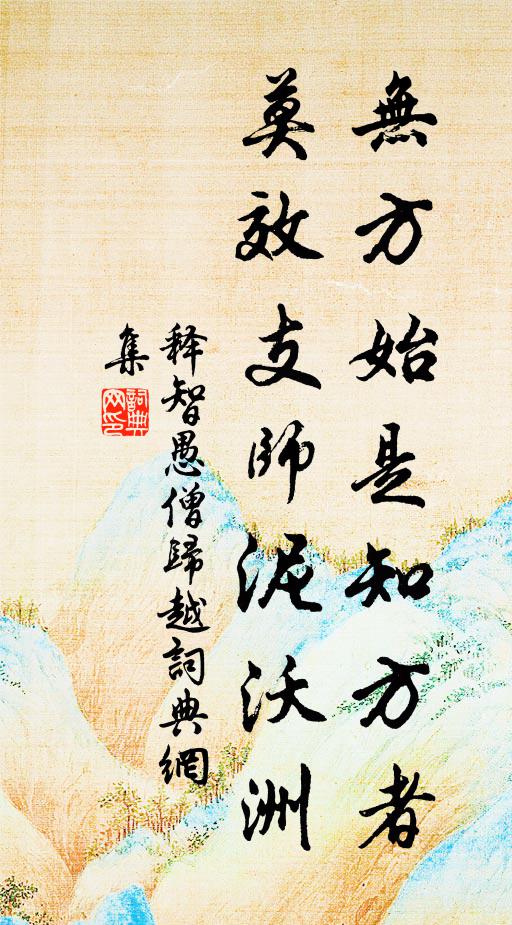 無方始是知方者
莫效支師泥沃洲
释智愚僧歸越詞典網
集
詞典
网印